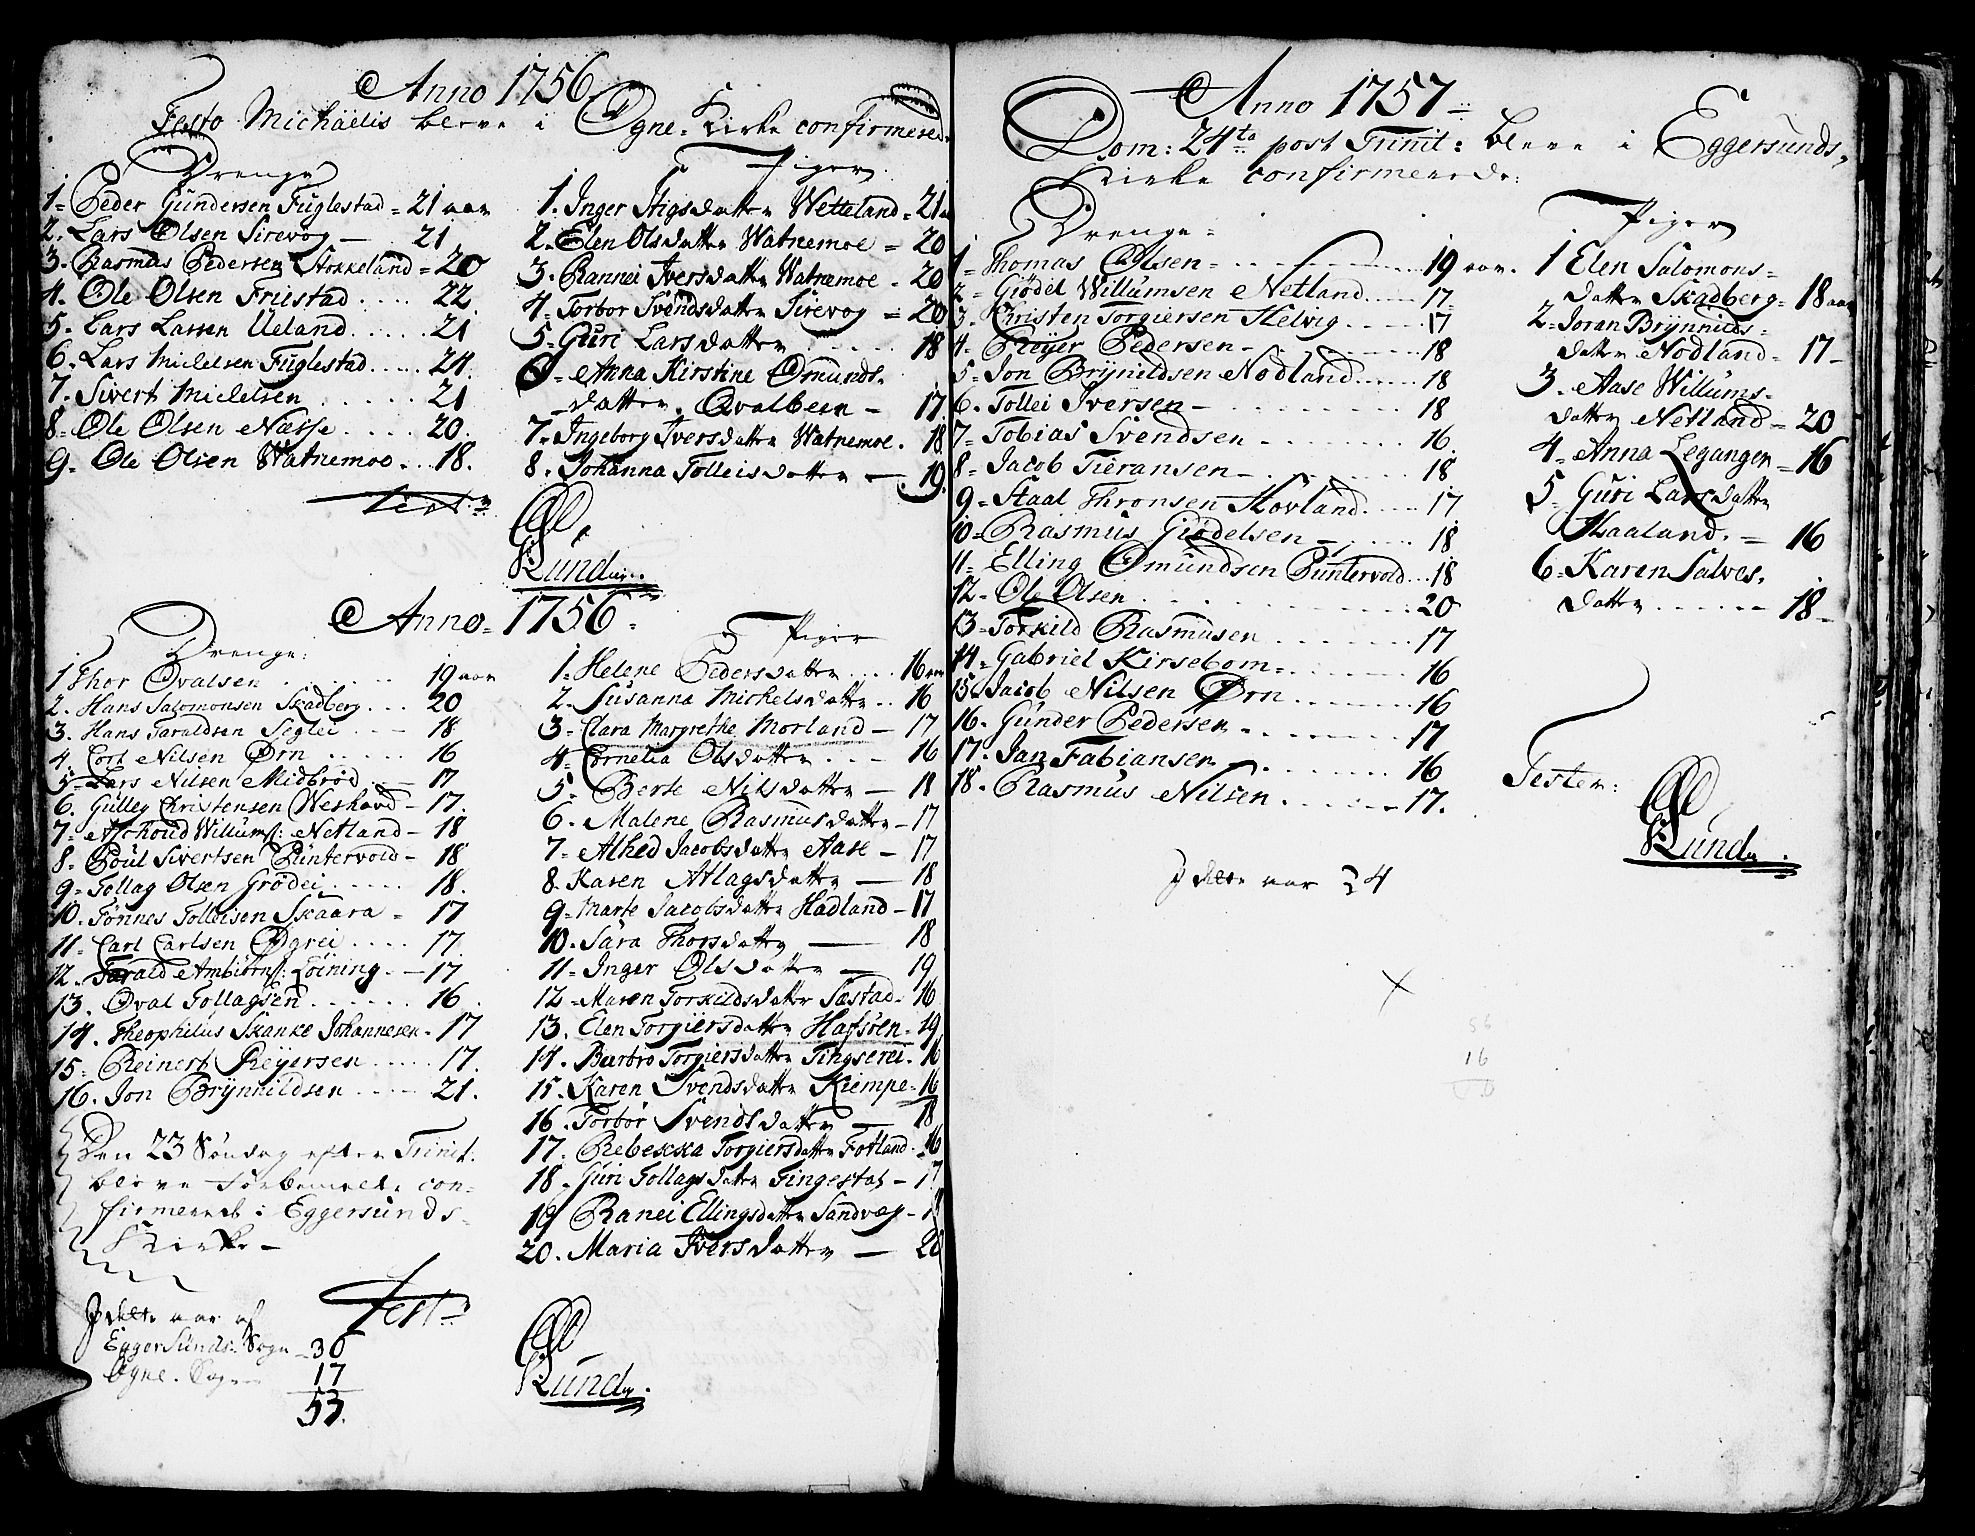 Anno 1756
Festo Michaëlis bleve i Ogne-Kirke confirmerede
Drenge
1- Peder Gundersen Fuglestad = 21 aar
2. Lars Olsen Sirevog — 21
3. Rasmus Pedersen Stokkeland = 20
4. Ole Olsen Friestad .... 22
5. Lars Larsen Ueland ..... 21
6. Lars Mickelsen Fuglestad .... 24.
7. Sivert Mickelsen ...... 21
8- Ole Olsen Næsse ..... 20.
9. Ole Olsen Watnemoe ... 18.
Piger
1. Inger Stigsdatter Wetteland = 21
2. Elen Olsdatter Watnemoe = 20
3. Rannei Iversdatter Watnemoe - 20
4- Torbor Svendsdatter Sirevog = 20
5- Guri Larsdatter ..... 18
6- Anna Kirstine Omunds-
datter. Qvalbeen — 17
7- Ingeborg Iversdatter Watnemoe. 18
8. Johanna Tolleisdatter — 19.
Test:
Lund
Anno 1756
Drenge:
1 Thor Ovalsen ...... 19 aar
2. Hans Salomonsen Skadberg ... 20
3. Hans Taraldsen Seglei ... 18
4. Cort Nilsen Örn ..... 16
5- Lars Nilsen Midbrød ... 17
6. Gulleg Christensen — 17.
7- Willums: Netland — 18
8. Poül Sivertsen Puntervold — 18
9- Tollag Olsen Grødei ..... 18.
10. Tönnes Tolleisen Skaara = 17
11- Carl Carlsen .... 17.
12. Tarald Ambiörns: — 17
13. Oval Tollagsen ...... 16.
14. Theophilus Skanke Johannesen - 17
15- Reinert Reyersen ..... 17.
16. Jon Brynnildsen ..... 21.
Den 23 Söndag efter Trinit.
bleve forbemelte con-
firmeret i Eggersunds-
Kirke —
I dette aar af
Eggersunds Sogn - 30
Ogne. Sogn 17
53.
Piger
1- Helene Pedersdatter .... 16 aar
2- Susanna Mickelsdatter .. 16
3- Clara Margrethe Morland — 17
4- Cornelia Olsdatter ... 16
5. Berte Nilsdatter — 18
6. Malene Rasmusdatter — 17
7- Alhed Jacobsdatter Aase — 17
8. Karen Atlagsdatter — 18
9- Marte Jacobsdatter Hadland — 17
10. Sara Thorsdatter — 18
11- Inger Olsdatter — 19
12- Maren Torkildsdatter Sæstad - 16
13. Elen Torgiersdatter Hafsöen - 19
14. Barbro Torgiersdatter Tingserei. 16
15. Karen Svendsdatter Kiempe- 16
16. Torbor Svendsdatter — 18
17. Rebekka Torgiersdatter Fotland. 16
18. Guri Tollagsdatter Fingestad — 17
19 Ranei Ellingsdatter Sandvog — 18
20. Maria Iversdatter — 20
Test:
Lund
Anno 1757
Dom: 24ta post Trinit: bleve i Eggersunds
Kirke confirmerede:
Drenge
1- Thomas Olsen ....... 19 aar.
2- Giødel Willumsen Netland .... 17
3. Christen Torgiersen Helvig .... 17
4- Reyer Pedersen ........ 18
5- Jon Brynildsen Nodland ..... 18
6. Tollei Iversen ........ 18
7- Tobias Svendsen ....... 16
8- Jacob Tieransen ....... 18
9- Staal Thronsen Hovland .... 17
10- Rasmus Giødelsen ..... 18
11- Elling Omundsen Puntervold ... 18
12- Ole Olsen ......... 20
13- Torkild Rasmusen ...... 17
14- Gabriel Kirsebom ...... 16
15- Jacob Nilsen Ørn ...... 16
16. Gunder Pedersen ...... 17
17. Jan Fabiansen ....... 16
18. Rasmus Nilsen ...... 17.
Piger
1 Elen Salomons-
datter Skadberg - 18 aar
2- Joran Brynnilds-
datter Nodland - 17 -
3. Aase Willums-
datter Netland - 20
4- Anna Legangen - 16
5- Guri Larsdatter
Haaland. — 16
6- Karen Salves.
datter ...... 18 -
Tester:
Lund
I dette aar 24
56
16